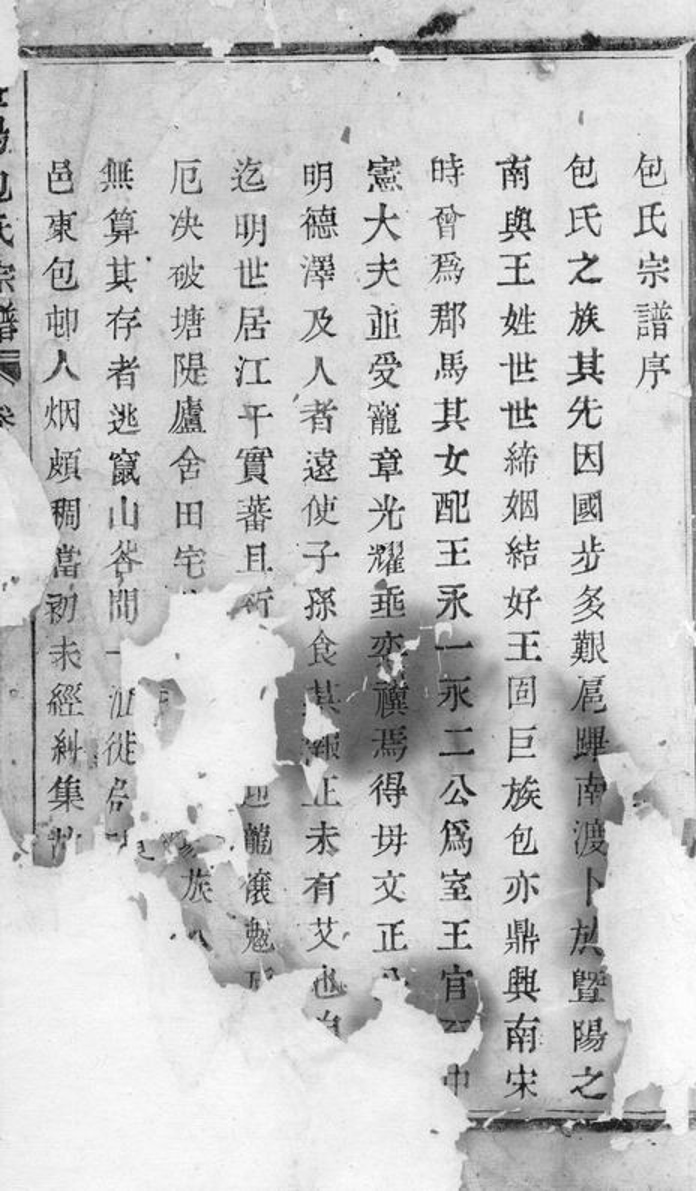 包氏宗譜序
包氏之族其先因國步多艱扈蹕南渡卜於暨陽之
南與王姓世世締姻結好王固巨族包亦鼎興南宋
時曾爲郡馬其女配王永一永二公爲室王官至中
憲大夫並受寵章光耀垂奕禩焉得毋文正公
明德澤及人者遠使子孫食其報正未有艾也自
迄明世居江干實蕃且衍龍濠魃
厄决破塘隄廬舍田宅族
無算其存者逃竄山谷間一徙
邑東包邨人烟頗稠當初未經糾集
陽包氏宗譜
卷